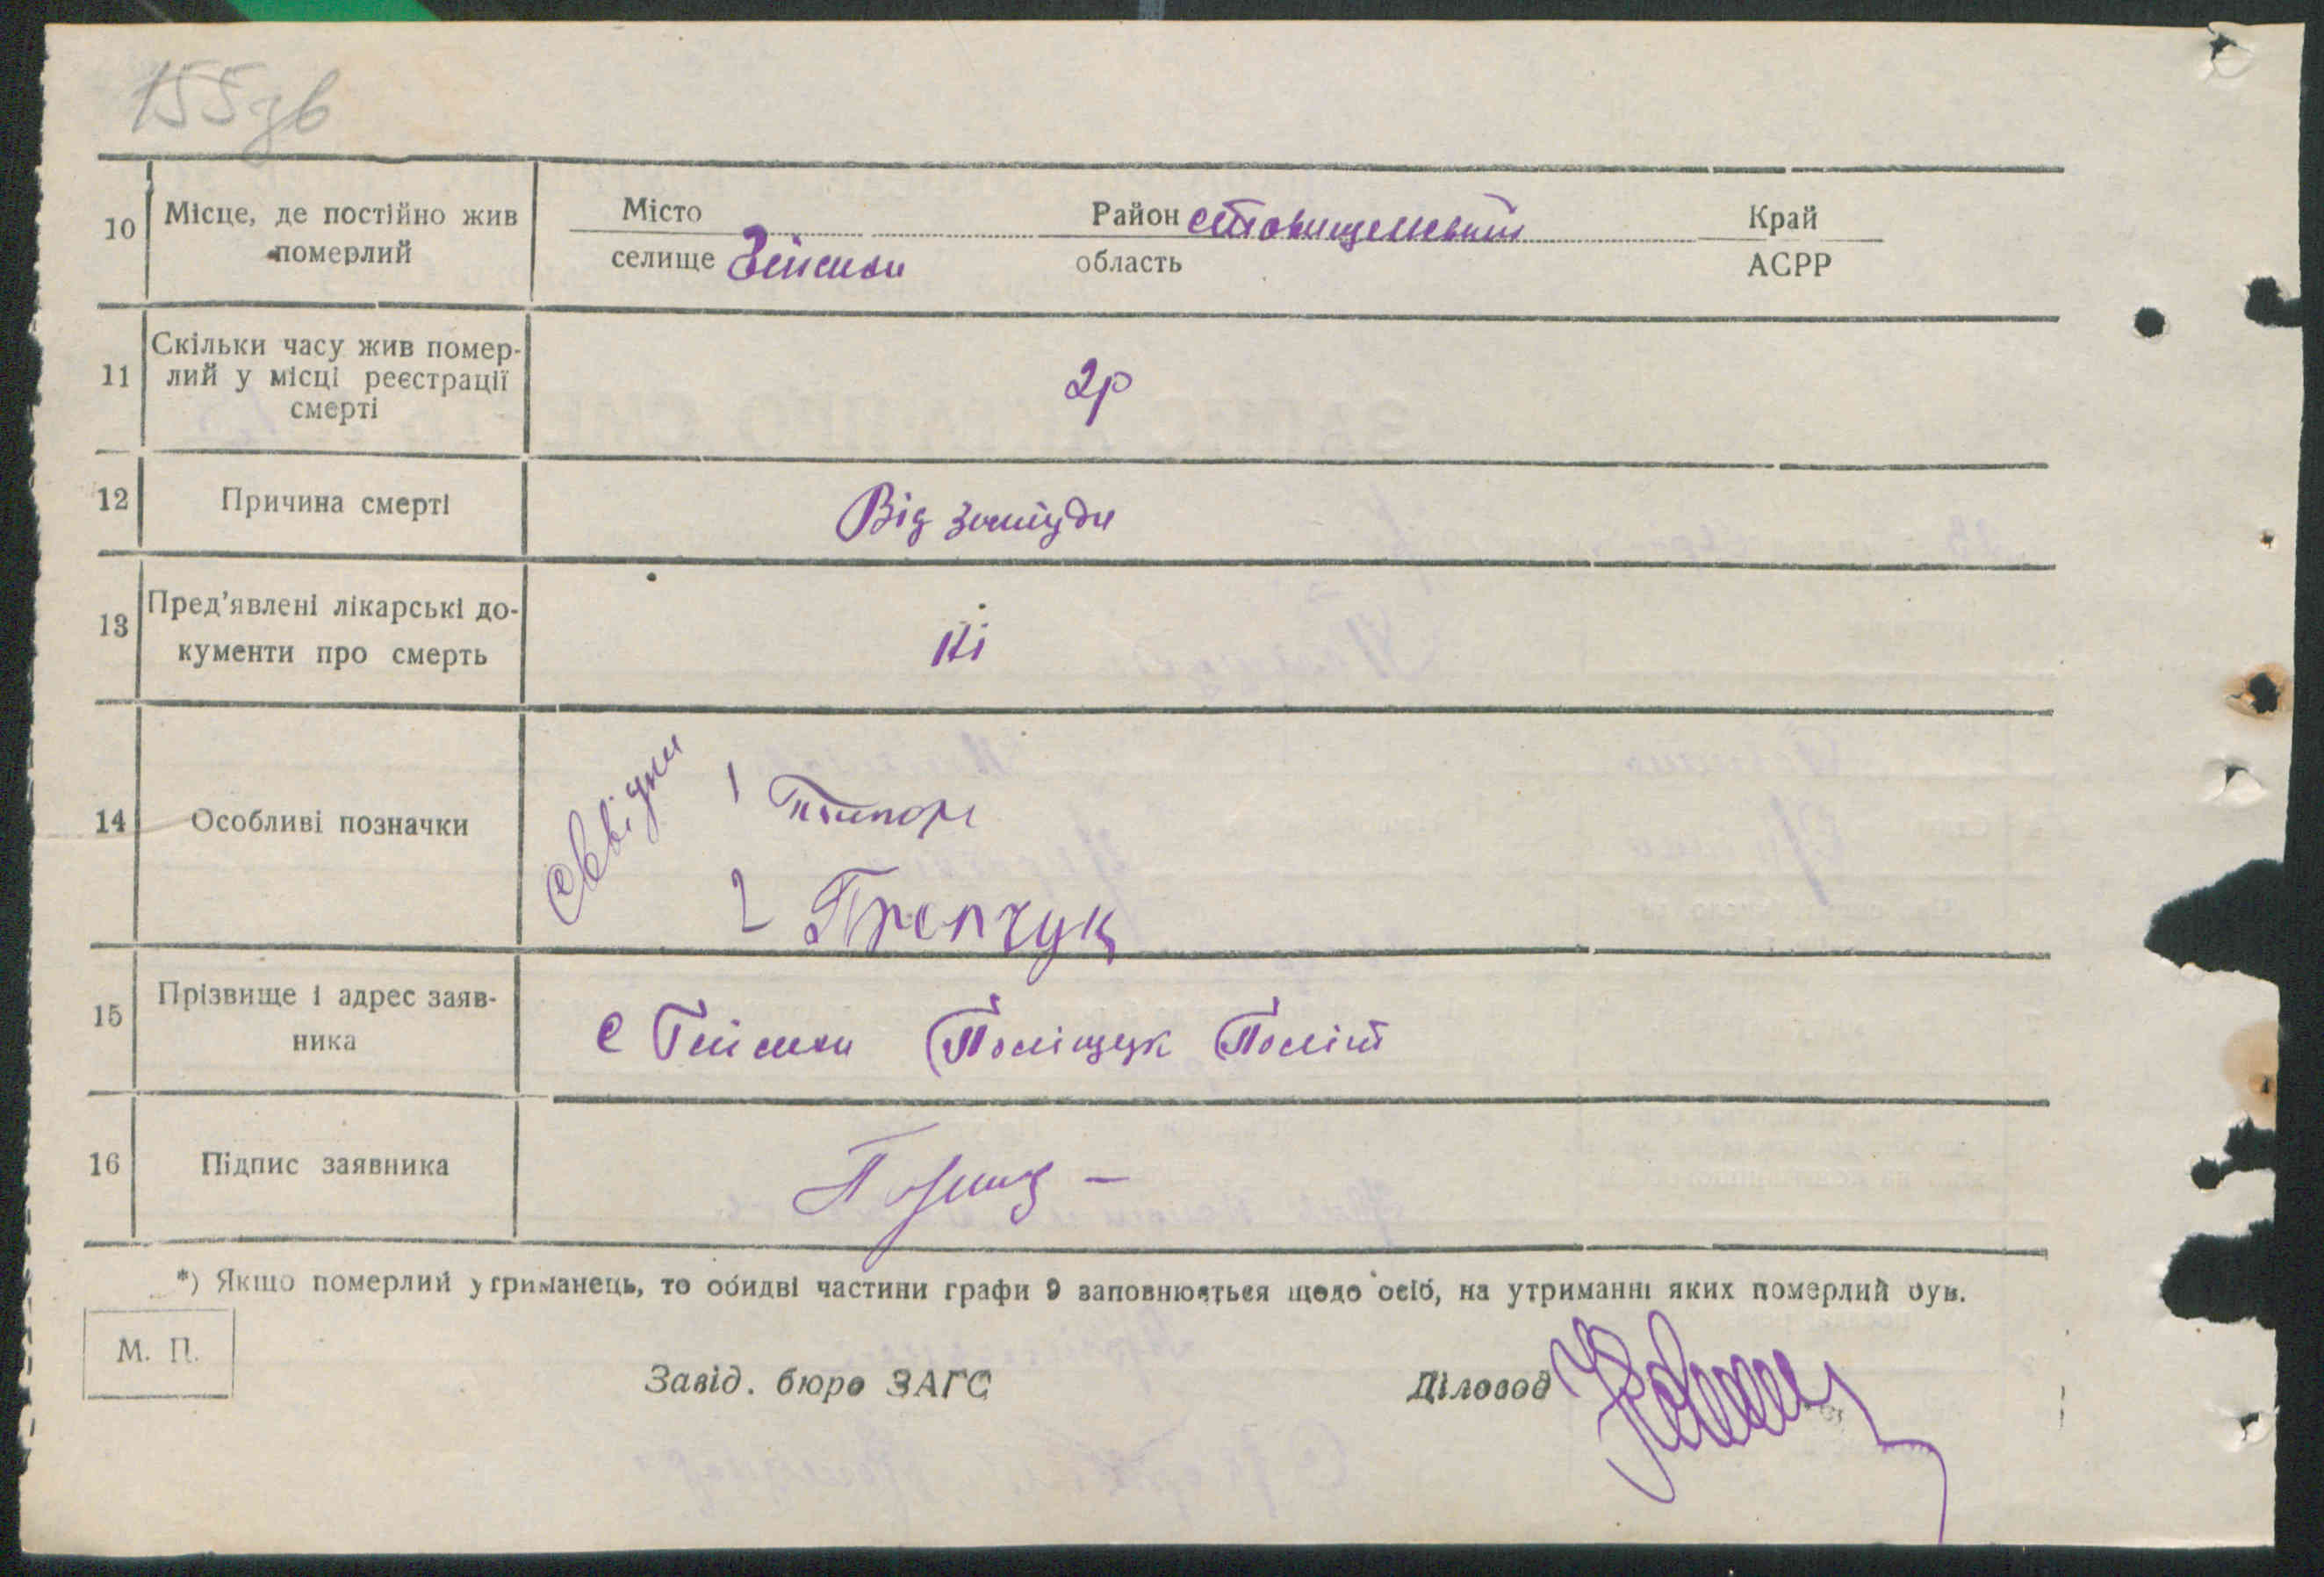 155зв
10 Місце, де постійно жив померлий
Місто Район Ставищенський Край
селище Гейсиха область АСРР
11 Скільки часу жив помер-
лий у місці реєстрації
смерті
2р
12 Причина смерті Від простуди
13 Пред’явлені лікарські до-
кументи про смерть
Ні
14 Особливі позначки
Свідки 1
2
15 Прізвище і адрес заяв-
ника
с Гейсиха Поліщук
16 Підпис заявника
*) Якщо померлий утриманець, то обидві частини графи 9 заповнюється щодо осіб, на утриманні яких померлий був.
М. П.
Завід. бюро ЗАГС Діловод